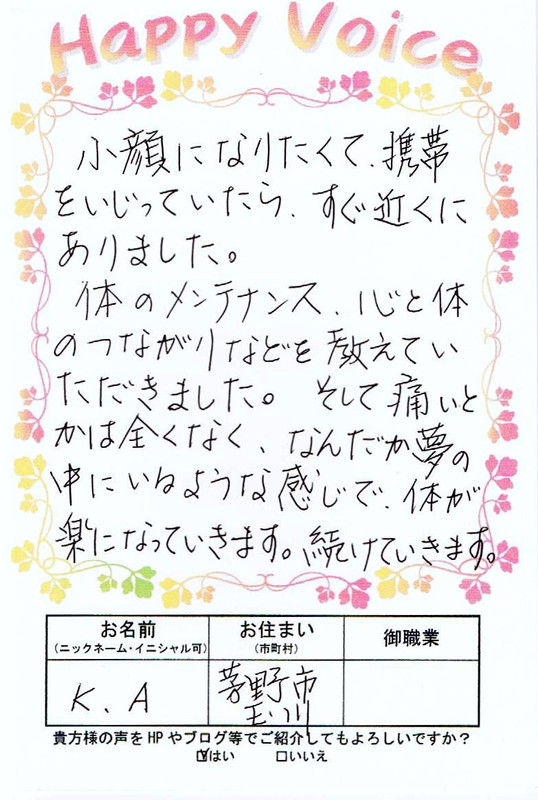 Happy Voice
小顔になりたくて、携帯
をいじっていたら、すぐ近くに
ありました。
体のメンテナンス、心と体
のつながりなどを教えてい
ただきました。 そして痛いと
かは全くなく、なんだか夢の
中にいるような感じで、体が
楽になっていきます。続けていきます。
お名前
(ニックネーム・イニシャル可)
お住まい
(市町村)
御職業
K、A
茅野市
玉川
貴方様の声をHPやブログ等でご紹介してもよろしいですか？
☑はい □いいえ